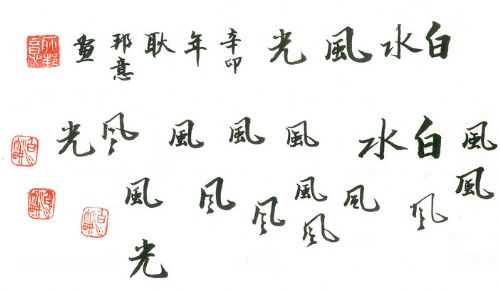 白水風光 辛卯年 耿邦意畫
風白水風風風风光
風风風風风风风風
光